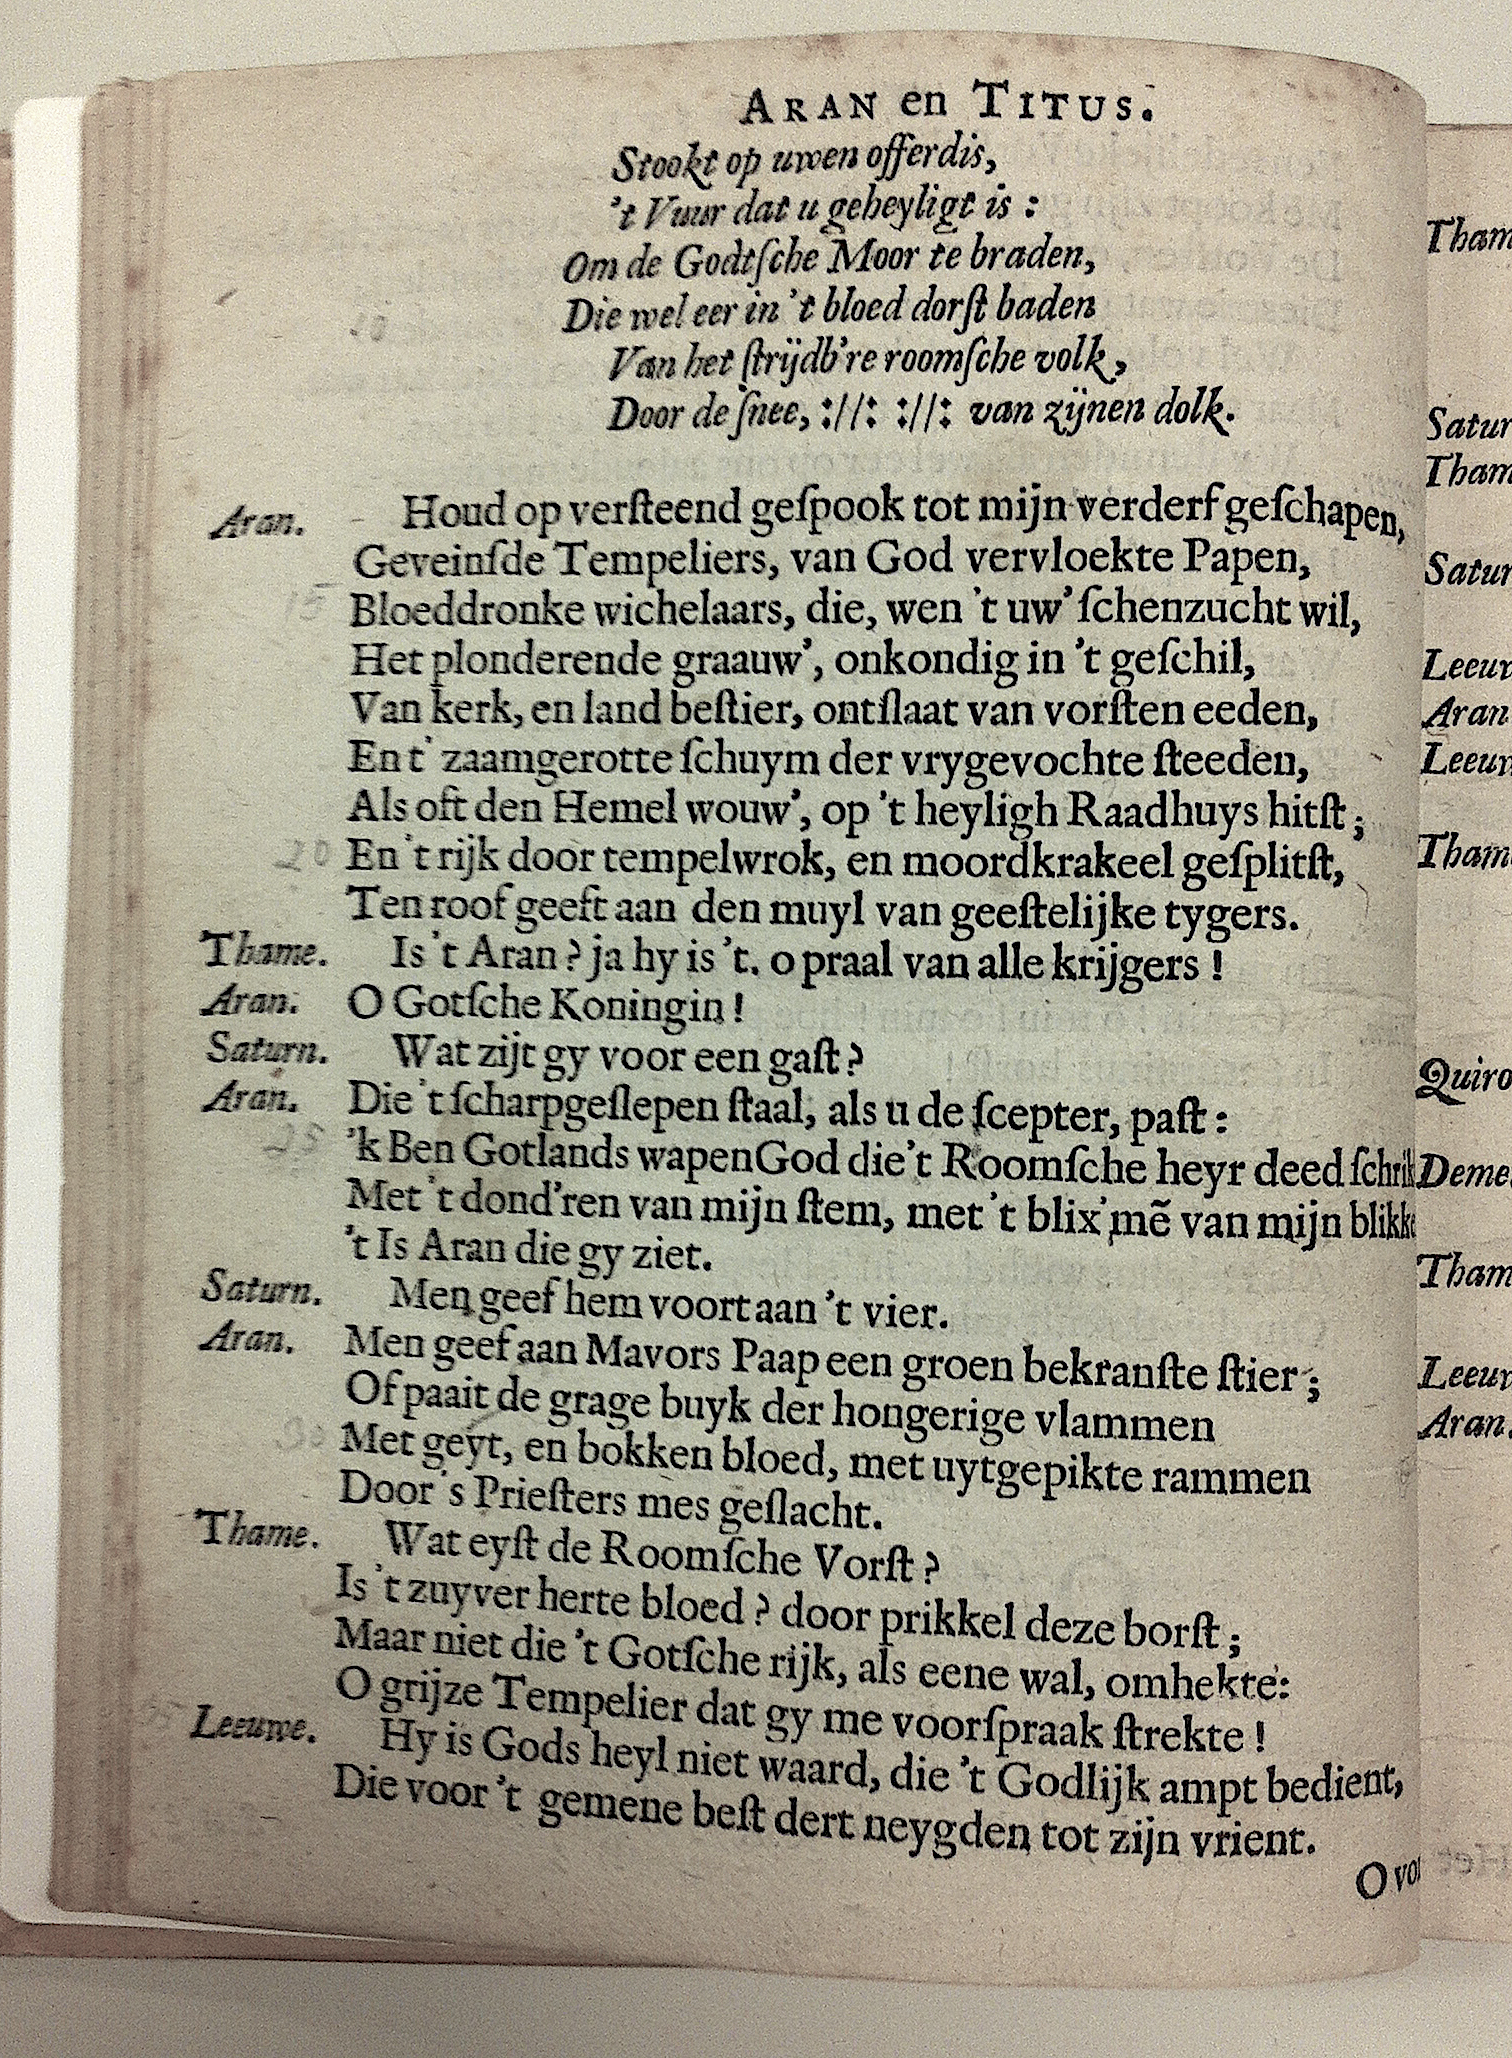 ARAN en TITUS.
Stookt op uwen offerdis,
't Vuur dat u geheyligt is :
Om de Godtſche Moor te braden,
Die wel eer in 't bloed dorſt baden
Van het ſtrijdb're roomſche volk,
Door de ſnee, ://: ://: van zijnen dolk.
Aran. Houd op verſteend geſpook tot mijn verderf geſchapen,
Geveinſde Tempeliers, van God vervloekte Papen,
Bloeddronke wichelaars, die, wen 't uw' ſchenzucht wil,
Het plonderende graauw', onkondig in 't geſchil,
Van kerk, en land beſtier, ontſlaat van vorſten eeden,
En t' zaamgerotte ſchuym der vrygevochte ſteeden,
Als oft den Hemel wouw', op 't heyligh Raadhuys hitſt;
En 't rijk door tempelwrok, en moordkrakeel geſplitſt,
Ten roof geeft aan den muyl van geeſtelijke tygers.
Thame. Is 't Aran? ja hy is 't. o praal van alle krijgers!
Aran. O Gotſche Koningin!
Saturn. Wat zijt gy voor een gaſt?
Aran. Die 't ſcharpgeſlepen ſtaal, als u de ſcepter, paſt:
'k Ben Gotlands wapenGod die 't Roomſche heyr deed
Met 't dond'ren van mijn ſtem, met 't blix'mẽ van mijn
't Is Aran die gy ziet.
Saturn. Men geef hem voort aan 't vier.
Aran. Men geef aan Mavors Paap een groen bekranſte ſtier;
Of paait de grage buyk der hongerige vlammen
Met geyt, en bokken bloed, met uytgepikte rammen
Door 's Prieſters mes geſlacht.
Thame. Wat eyſt de Roomſche Vorſt?
Is 't zuyver herte bloed? door prikkel deze borſt;
Maar niet die 't Gotſche rijk, als eene wal, omhekte:
O grijze Tempelier dat gy me voorſpraak ſtrekte!
Leeuwe. Hy is Gods heyl niet waard, die 't Godlijk ampt bedient,
Die voor 't gemene beſt dert neygden tot zijn vrient.
O
20
25
Aran
Aran.